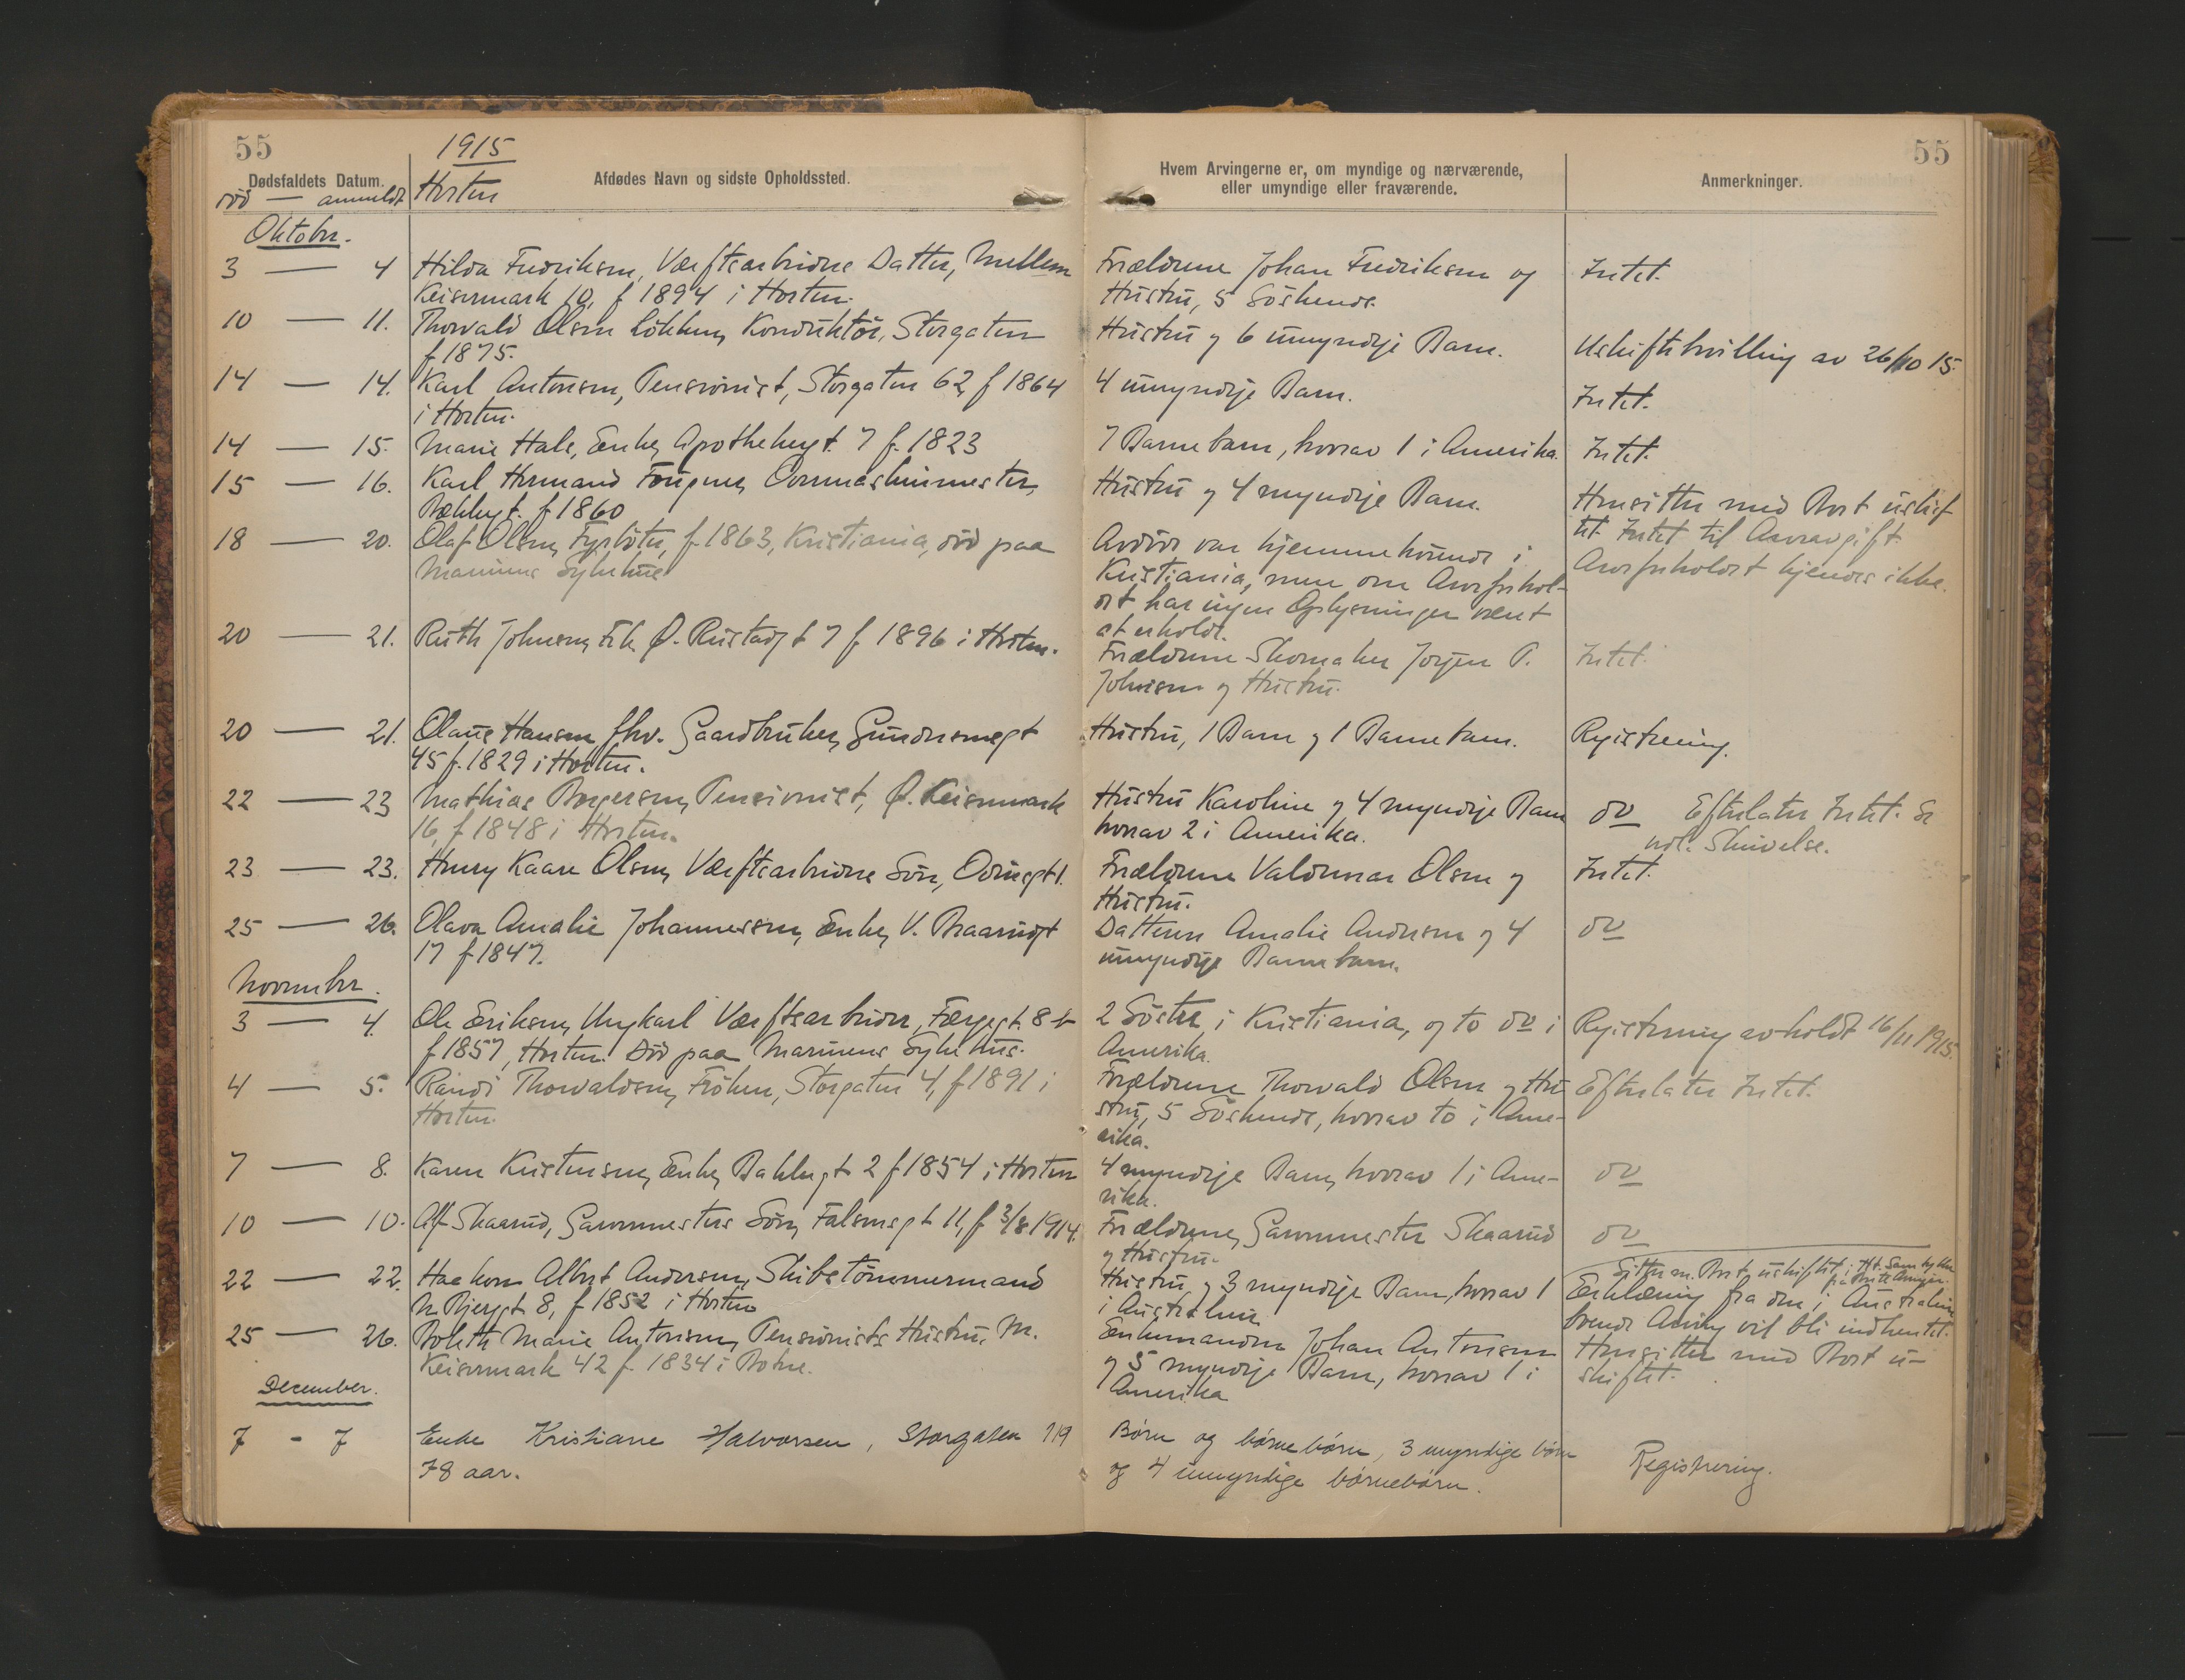 55
1915
Dødsfaldets Datum.
død — anmeldt
Horten
Afdødes Navn og sidste Opholdssted.
Hvem Arvingerne er, om myndige og nærværende,
eller umyndige eller fraværende.
Anmerkninger.
55
Oktober.
3 — 4 Hilda Fredriksen, Værftsarbeiders Datter, Mellem
Keisermark 10, f 1894 i Horten.
Forældrene Johan Fredriksen og
Hustru, 5 Söskende.
Intet.
10 — 11. Thorvald Olsen Lökken, Konduktör, Storgaten
f 1875.
Hustru og 6 umyndige Barn.
Uskiftebevilling av 26/10 15.
14 — 14. Karl Antonsen, Pensionist, Storgaten 62, f 1864
i Horten.
4 umyndige Barn.
Intet.
14 — 15. Marie Hals, Enke, Apothekergt. 7 f. 1823
7 Barnebarn, hvorav 1 i Amerika.
Intet.
15 — 16. Karl Hermand Fougner, Overmaskinmester,
Bekkegt. f 1860
Hustru og 4 myndige Barn.
Hensitter med Bort uskif
tet. Intet til Arveavgift.
18 — 20. Olaf Olsen, Fyrböter, f. 1863, Kristiania, död paa
Marinens Sykehus
Avdöde var hjemmehörende i
Kristiania, men om Arveforhol-
det har ingen Oplysninger været
at erholde.
Arveforholdet kjendes ikke.
20 — 21. Ruth Johnsen, Frk. Ø. Rustadgt 7 f 1896 i Horten.
Forældrene Skomaker Jörgen P.
Johnsen og Hustru.
Intet.
20 — 21. Olaus Hansen, fhv. Gaardbruker, Gundersensgt
45 f. 1829 i Horten.
Hustru, 1 Barn og 1 Barnebarn.
Registrering.
22 — 23 Mathias Borgersen, Pensionist, Ø. Keisermark
16, f 1848 i Horten.
Hustru Karoline og 4 myndige Barn
hvorav 2 i Amerika.
do Efterlater Intet. Se
vedl. Skrivelse.
23 — 23. Henry Kaare Olsen, Værftsarbeiders Sön, Odinsgt 1.
Forældrene Valdemar Olsen og
Hustru.
Intet.
25 — 26. Olava Amalie Johannessen, Enke, V. Braarudgt
17 f 1847.
Datteren Amalie Andersen og 4
umyndige Barnebarn.
do
November.
3 — 4. Ole Eriksen, Ungkarl Værftsarbeider, Færgegt. 8 b
f 1857, Horten. Död paa Marinens Sykehus.
2 Söstre i Kristiania, og to do i
Amerika.
Registrering avholdt 16/11 1915.
4 — 5. Randi Thorvaldsen, Fröken, Storgaten 4, f 1891 i
Horten.
Forældrene Thorvald Olsen og Hu
stru, 5 Söskende, hvorav to i Ame-
rika.
Efterlater Intet.
7 — 8. Karen Kristensen, Enke, Bakkegt 2 f 1854 i Horten
4 myndige Barn, hvorav 1 i Ame-
rika.
do
10 — 10. Alf Skaarud, Garvermesters Sön, Falsensgt 11, f 3/8 1914.
Forældrene, Garvermester Skaarud
og Hustru.
do
22 — 22. Haakon Albert Andersen, Skibstömmermand
N. Bjergt 8, f 1852 i Horten
Hustru og 3 myndige Barn, hvorav 1
i Australien
Sitter m. Bort uskiftet i Hht. Samtykke
fra Arvinger.
Erklæring fra den i Australien
boende Arving vil bli indhentet.
25 — 26. Boleth Marie Antonsen, Pensionists Hustru, M.
Keisermark 42 f. 1834 i Botne.
Enkemanden Johan Antonsen
og 5 myndige Barn, hvorav 1 i
Amerika
Hensitter med Bort u-
skiftet.
December.
7 - 7 Enke Kristiane Halvorsen, Storgaten 119
78 aar.
Børn og børnebørn, 3 myndige børn
og 4 umyndige børnebørn.
Registrering.